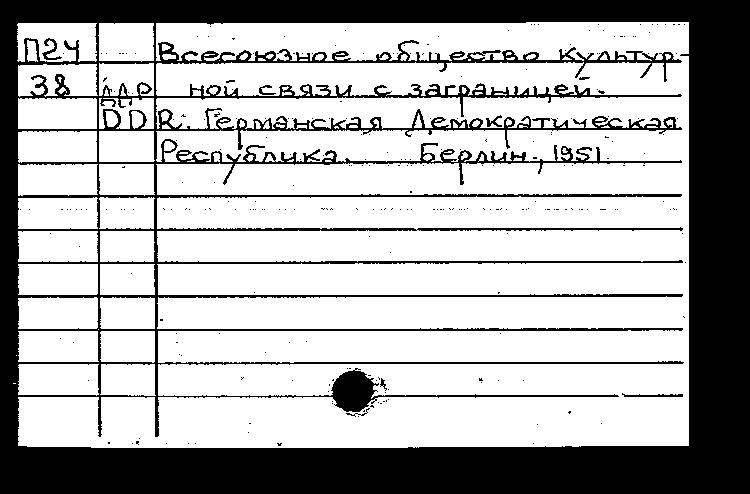 П24 Всесоюзное общество культур-
38 ной связи с заграницей.
DDR. Германская Демократическая
Республика. Берлин., 1951.